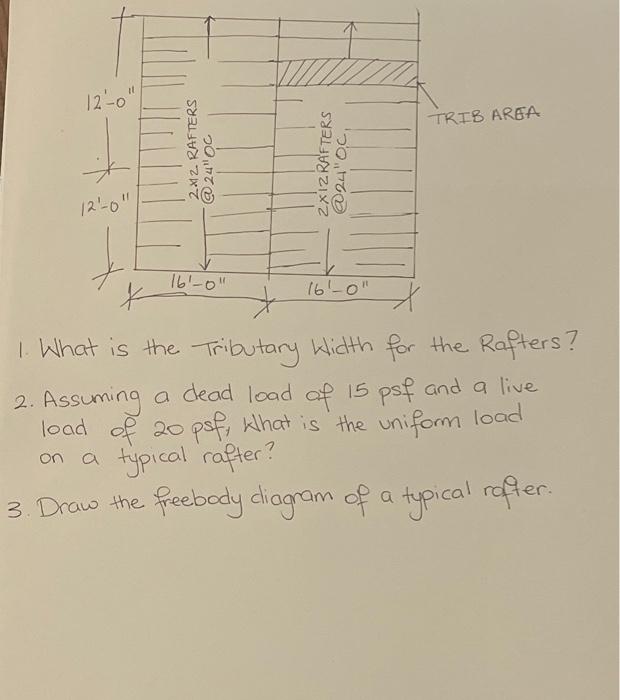 12'-0"
2x12 RAFTERS
@24"OC
2x12 RAFTERS
@24"O.C.
TRIB AREA
12'-0"
16'-0"
16'-0"
1. What is the Tributary Width for the Rafters?
2. Assuming a dead load of 15 psf and a live
load of 20 psf, What is the uniform load
on a typical rafter?
3. Draw the freebody diagram of a typical rafter.